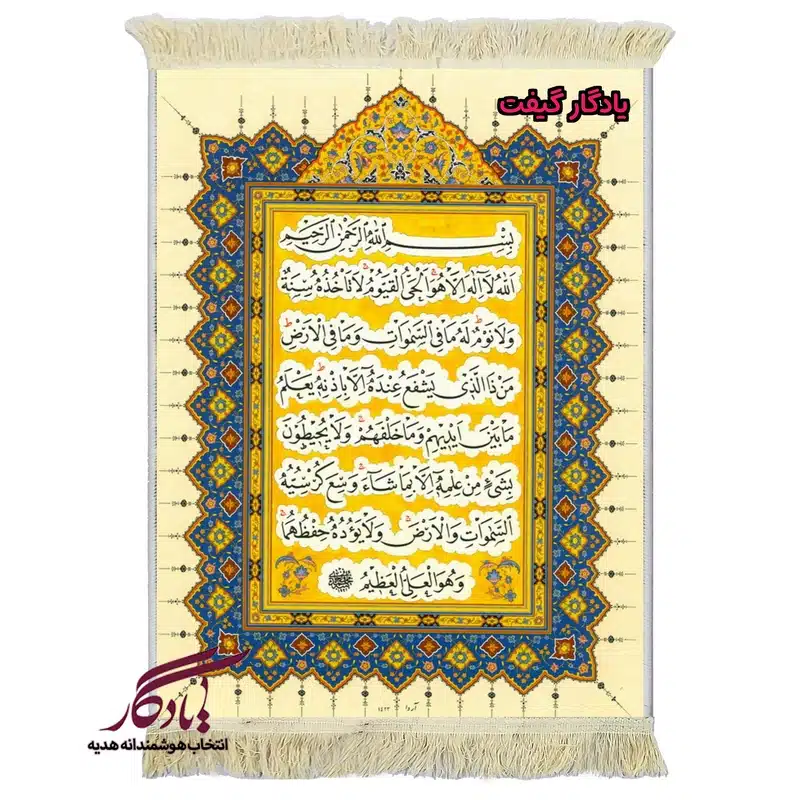 یادگار گیفت
بِسْمِ اللهِ الرَّحْمٰنِ الرَّحِیْمِ
اَللهُ لَا اِلٰهَ اِلَّا هُوَ الْحَیُّ الْقَیُّومُ لَا تَأْخُذُهُ سِنَةٌ
وَلَا نَوْمٌ لَهُ مَا فِی السَّمٰوَاتِ وَمَا فِی الْاَرْضِ
مَنْ ذَا الَّذٖی یَشْفَعُ عِنْدَهُ اِلَّا بِاِذْنِهٖ یَعْلَمُ
مَا بَیْنَ اَیْدٖیهِمْ وَمَا خَلْفَهُمْ وَلَا یُحٖیطُونَ
بِشَیْءٍ مِنْ عِلْمِهٖ اِلَّا بِمَا شَاءَ وَسِعَ کُرْسِیُّهُ
السَّمٰوَاتِ وَالْاَرْضَ وَلَا یَؤُدُهُ حِفْظُهُمَا
وَهُوَ الْعَلِیُّ الْعَظٖیمُ
یادگار
انتخاب هوشمندانه هدیه